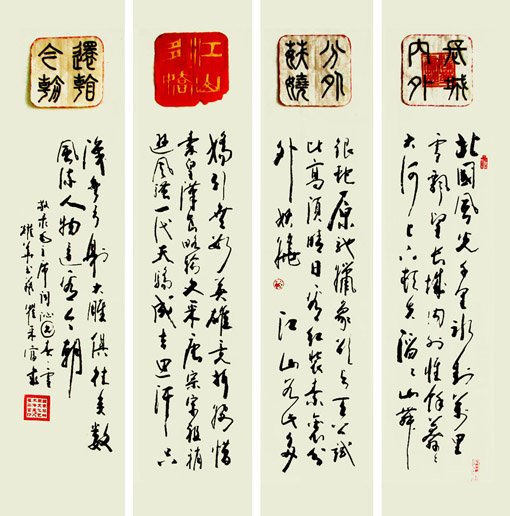 長城
內外
北國風光千里冰封萬里
雪飄望長城內外惟餘莽莽
大河上下頓失滔滔山舞
分外
妖嬈
銀蛇原馳蠟象欲與天公試
比高須晴日看紅裝素裹分
外妖嬈 江山如此多
江山
多嬌
嬌引無數英雄競折腰惜
秦皇漢武略輸文采唐宗宋祖稍
遜風騷一代天驕成吉思汗只
還看
今朝
識彎弓射大雕俱往矣數
風流人物還看今朝
敬录毛主席詞沁園春雪